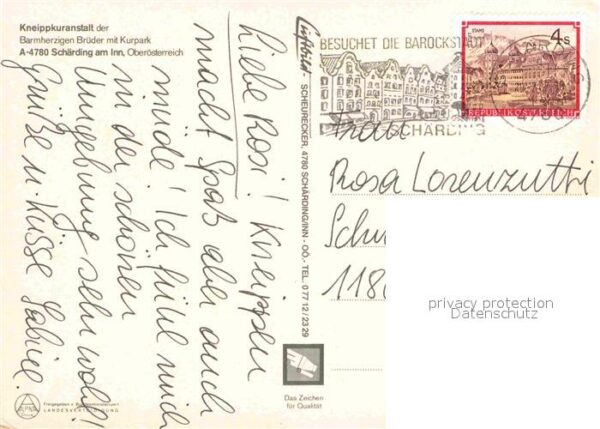 Kneippkuranstalt der
Barmherzigen Brüder mit Kurpark
A-4780 Schärding am Inn, Oberösterreich
Liebe Rosi! Kneippen
macht Spaß aber auch
müde! Ich fühle mich
in der schönen
Umgebung sehr wohl!
Grüße u. Küsse Sabine.
ALPINE
Freigegeben v. Bundesministerium f.
LANDESVERTEIDIGUNG
Luftbild - SCHEURECKER, 4780 SCHÄRDING/INN - OÖ.- TEL. 0 77 12 / 23 29
Das Zeichen
für Qualität
BESUCHET DIE BAROCKSTADT
SCHÄRDING
STAMS
4 S
REPUBLIK ÖSTERREICH
Frau
Rosa Lorenzutti
118
privacy protection
Datenschutz